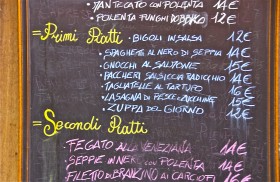 TEGATO CON POLENTA 14€
• POLENTA FUNGHI 12€
= Primi Piatti • BIGOLI IN SALSA 12€
• SPAGHETTI AL NERO DI SEPPIA 14€
• GNOCCHI AL SALMONE 15€
• PACCHERI SALSICCIA RADICCHIO 14€
• TAGLIATELLE AL TARTUFO 16€
• LASAGNA DI PESCE E ZUCCHINE 15€
• ZUPPA DEL GIORNO 12€
= Secondi Piatti
FEGATO ALLA VENEZIANA 14€
SEPPIE IN NERO CON POLENTA 14€
FILETTO DI BRANZINO AI CARCIOFI 16€